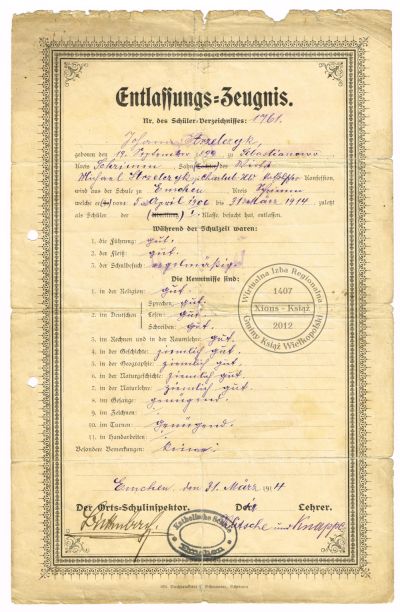 Entlassungs-Zeugnis.
Nr. des Schüler-Verzeichnisses: 1761.
Johann Strzelczyk,
geboren den 19. September 19 zu Sebastianowo
Kreis Schrimm Sohn des Wirts
Michael Strzelczyk Konfession,
wird aus der Schule zu Emchen Kreis Schrimm
welche er vom: 5. April 1900 bis 31. März 1914. zuletzt
als Schüler der I. Klasse besucht hat, entlassen.
Während der Schulzeit waren:
1. die Führung: gut.
2. der Fleiß: gut.
3. der Schulbesuch: regelmäßig.
Die Kenntnisse sind:
1. in der Religion: gut.
Sprechen: gut.
2. im Deutschen Lesen: gut.
Schreiben: gut.
3. im Rechnen und in der Raumlehre: gut.
4. in der Geschichte: ziemlich gut.
5. in der Geographie: ziemlich gut.
6. in der Naturgeschichte: ziemlich gut.
7. in der Naturlehre: ziemlich gut.
8. im Gesange: genügend.
9. im Zeichnen:
10. im Turnen: genügend.
11. in Handarbeiten:
Besondere Bemerkungen: keine.
Wirtualna Izba Regionalna
1407
Xions - Książ
2012
Gminy Książ Wielkopolski
Emchen, den 31. März 1914
Der Orts-Schulinspektor. Die Lehrer.
Nitsche und Knappe
Katholische Schule
Emchen